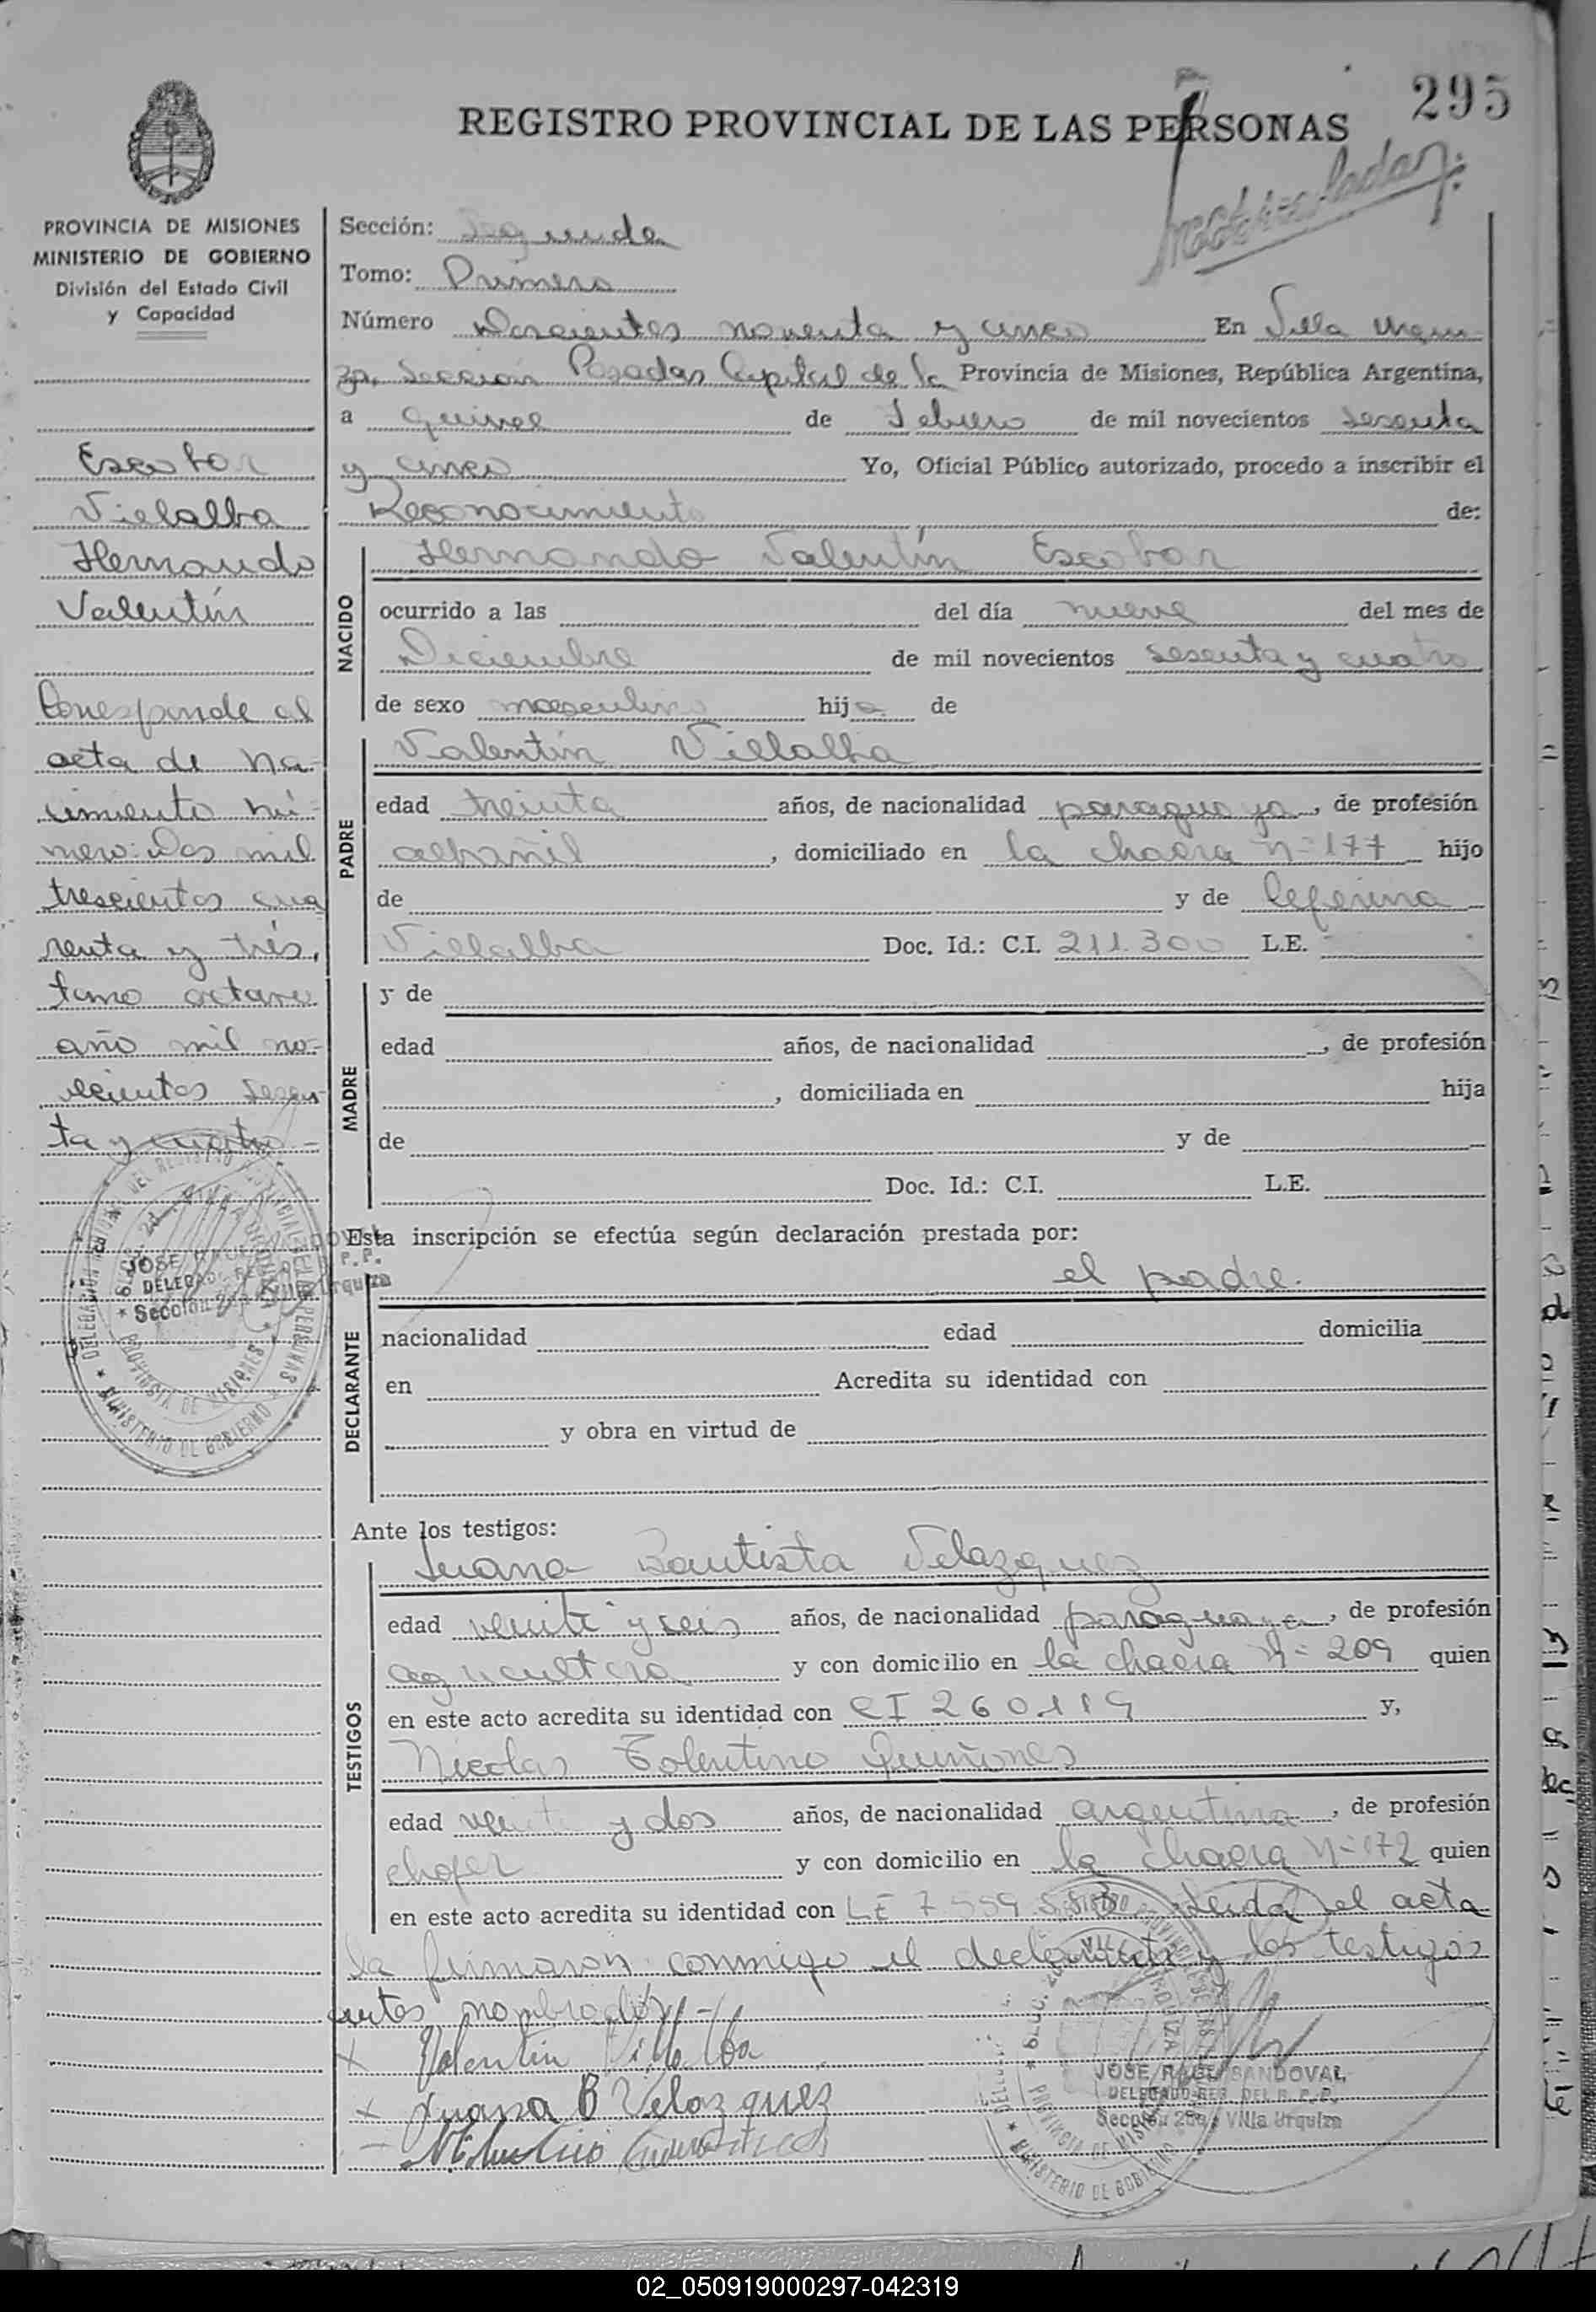 295
REGISTRO PROVINCIAL DE LAS PERSONAS
PROVINCIA DE MISIONES
MINISTERIO DE GOBIERNO
División del Estado Civil
y Capacidad
Escobar
Villalba
Hernando
Valentín
Corresponde al
acta de na-
cimiento nú-
mero: Dos mil
trescientos cua
renta y trés,
tomo octavo
año mil no-
vecientos sesen-
ta y cuatro -
Sección: Segunda
Tomo: Primero
Número Doscientos noventa y cinco En Villa Urqui-
za, Sección Posadas Capital de la Provincia de Misiones, República Argentina,
a quince de Febrero de mil novecientos sesenta
y cinco Yo, Oficial Público autorizado, procedo a inscribir el
Reconocimiento de:
NACIDO
Hernando Valentín Escobar
ocurrido a las del día nueve del mes de
Diciembre de mil novecientos sesenta y cuatro
de sexo masculino hijo de
PADRE
Valentín Villalba
edad treinta años, de nacionalidad paraguaya, de profesión
albañil, domiciliado en la chacra Nº 177 hijo
de y de Ceferina
Villalba Doc. Id.: C.I. 211.300 L.E.
MADRE
y de
edad años, de nacionalidad , de profesión
, domiciliada en hija
de y de
Doc. Id.: C.I. L.E.
Esta inscripción se efectúa según declaración prestada por:
el padre.
DECLARANTE
nacionalidad edad domicilia
en Acredita su identidad con
y obra en virtud de
Ante los testigos:
TESTIGOS
Juana Bautista Velazquez
edad veinte y seis años, de nacionalidad paraguaya, de profesión
agricultora y con domicilio en la chacra Nº 209 quien
en este acto acredita su identidad con CI 260119 y,
Nicolas Tolentino Quiñones
edad veinte y dos años, de nacionalidad argentina, de profesión
chofer y con domicilio en la chacra Nº 172 quien
en este acto acredita su identidad con LE Leida el acta
la firmaron conmigo el declarante y los testigos
antes nombrados -
x Valentin Villalba
x Juana B Velazquez
JOSE RAUL SANDOVAL
DELEGADO REG. DEL R. P. P.
Sección 2da Villa Urquiza
MINISTERIO DE GOBIERNO
PROVINCIA DE MISIONES
02_050919000297-042319